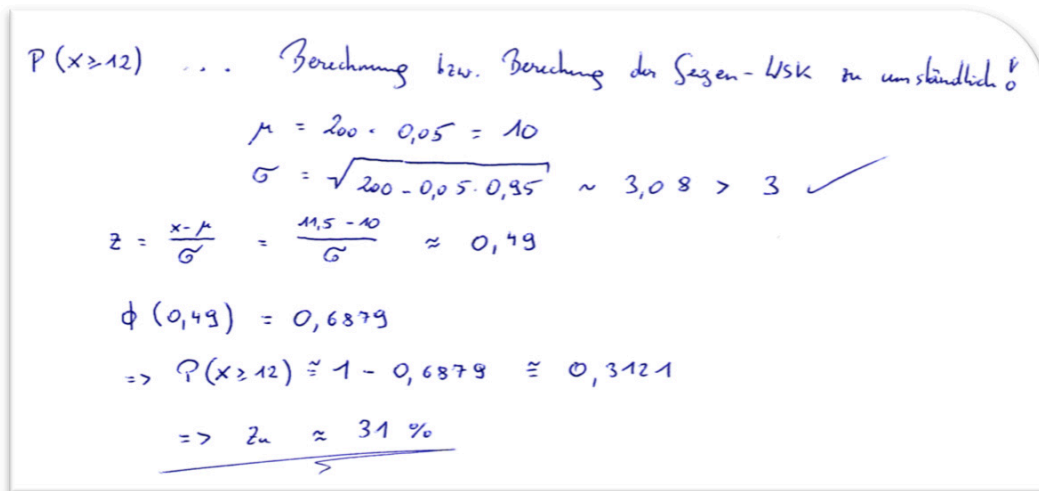 P(x≥12) ... Berechnung bzw. Berechung der Gegen-WSK zu umständlich!
μ = 200 · 0,05 = 10
σ = √200 - 0,05 · 0,95 ~ 3,08 > 3 ✓
z = x-μ/σ = 11,5-10/σ ≈ 0,49
ϕ(0,49) = 0,6879
=> P(x≥12) ≅ 1 - 0,6879 ≅ 0,3121
=> Zu ≈ 31 %